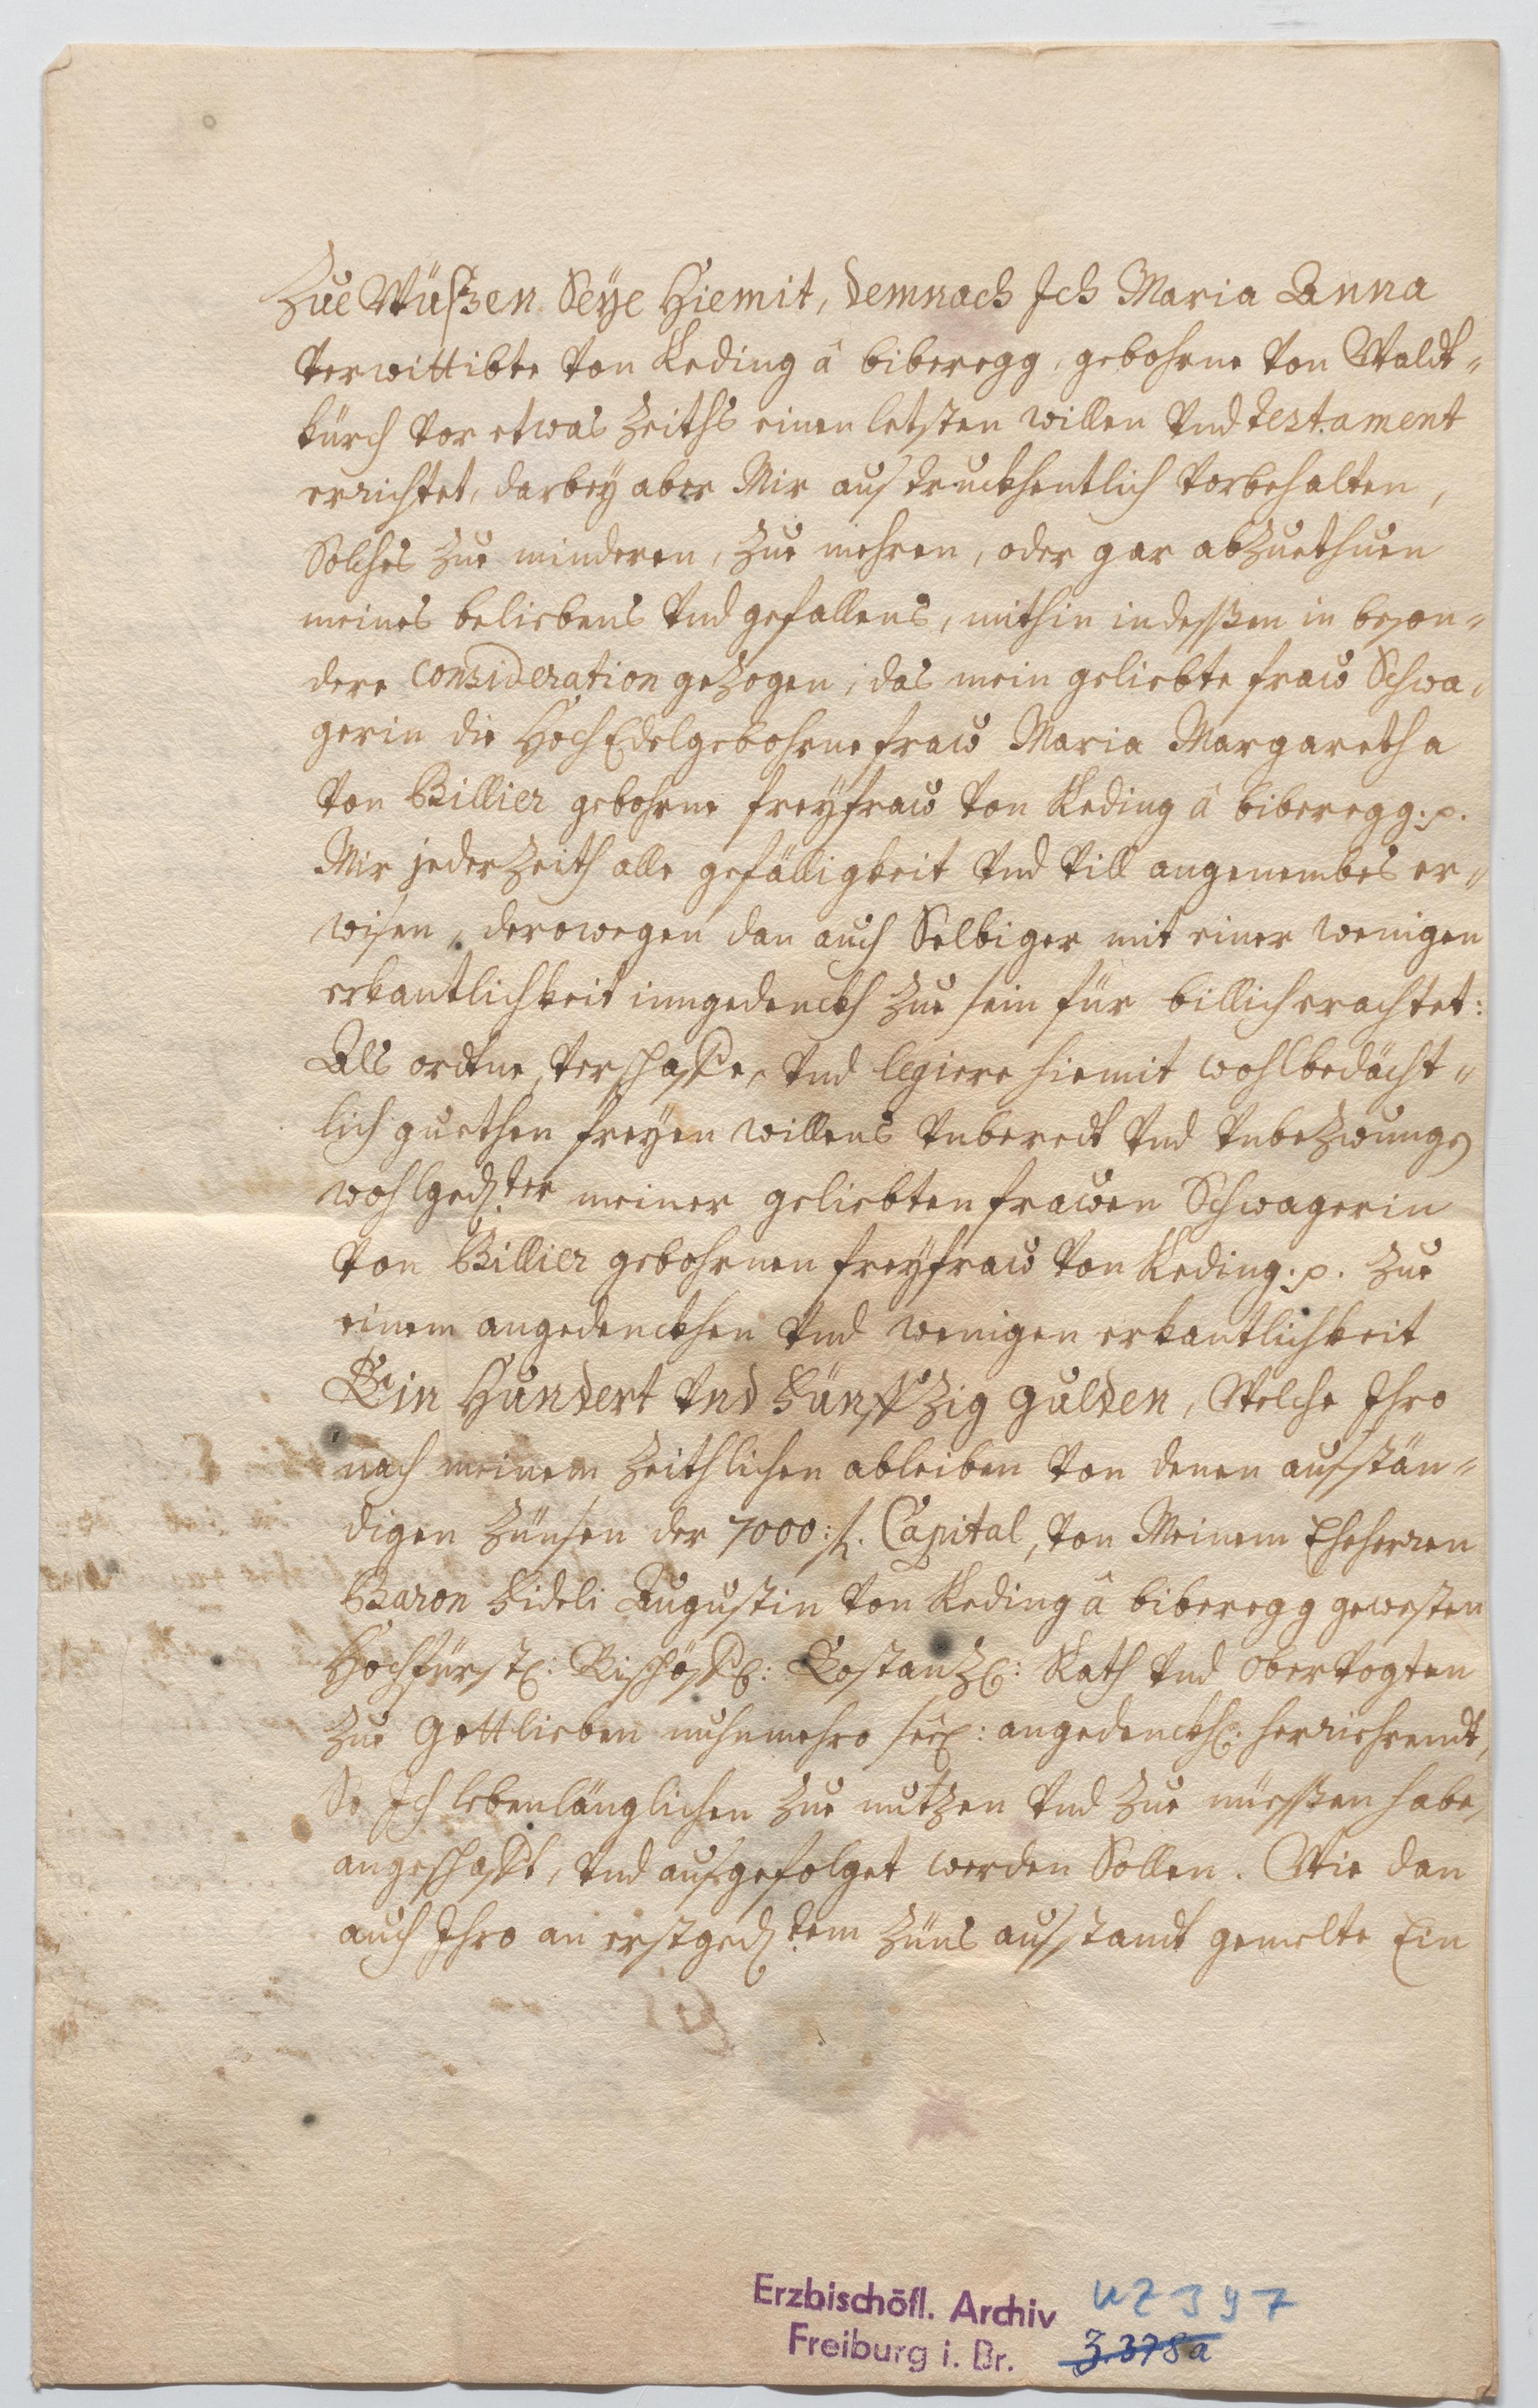 Zue Wüßen Seye Hiemit, demnach Ich Maria Anna
verwittibte von Reding â biberegg, gebohrne von Waldt=
kürch vor etwas Zeiths einen letsten willen vnd testament
errichtet, darbey aber Mir austruckhentlich vorbehalten,
Solches zue minderen, zue mehren, oder gar abzuethuen
meines beliebens vnd gefallens, mithin indeßen in beson=
dere Consideration gezogen, das mein geliebte fraw Schwa=
gerin die HochEdelgebohrne fraw Maria Margaretha
von Billier gebohrne freyfraw von Reding â biberegg. p.
Mir jederzeith alle gefälligkeit vnd vill angenembes er=
wisen, derowegen dan auch Selbiger mit einer wenigen
erkantlichkeit inngedenckh zue sein für billich erachtet:
Als ordne, verschaffe, vnd legiere hiemit wohlbedächt=
lich guethen freyen willens vnberedt vnd vnbezwungen
wohlged.ter meiner geliebten frawen Schwagerin
von Billier gebohrnen freyfraw von Reding. p. zue
einem angedenckhen vnd wenigen erkantlichkeit
Ein Hundert vnd Fünffzig gulden, Welche Ihro
nach meinem zeithlichen ableiben von denen ausstän=
digen Zünsen der 7000: fl. Capital, von Meinem Eheherren
Baron Fideli Augustin von Reding â biberegg gewesten
Hochfürstl: Bischöffl: Costanzl: Rath vnd obervogten
zue Gottlieben nuhnmehro seel: angedenckh: herriehrendt,
So Ich lebenlänglichen zue nutzen vnd zue nüeßen habe,
angeschafft, vnd ausgefolget werden Sollen. Wie dan
auch Ihro an erstged.tem Züns ausstandt gemelte Ein
Erzbischöfl. Archiv
Freiburg i. Br.
UZ 397
3.378a